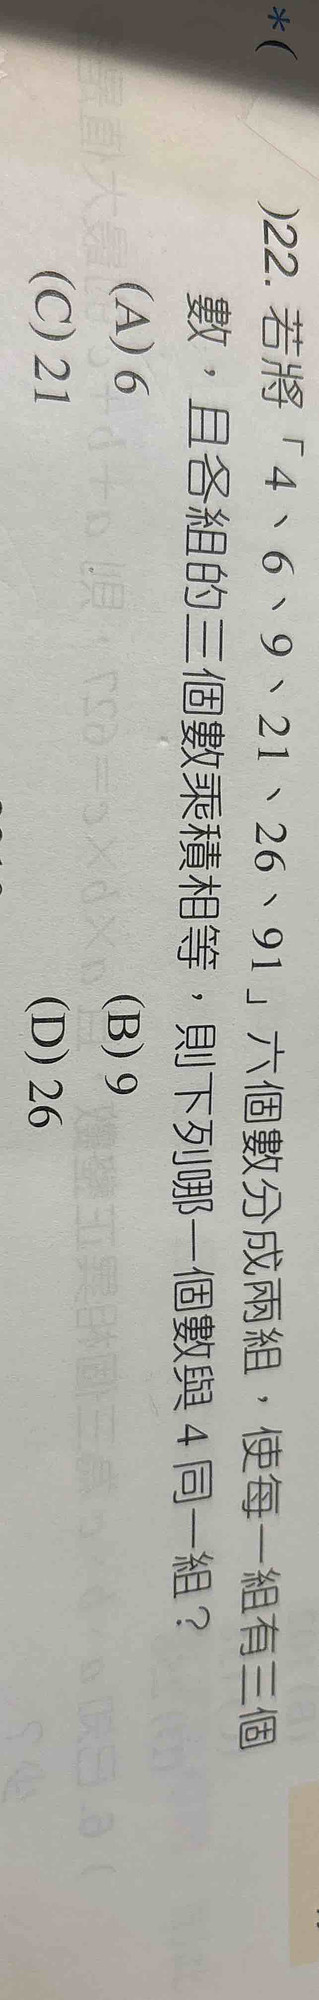 *( )22. 若將「4、6、9、21、26、91」六個數分成兩組，使每一組有三個
數，且各組的三個數乘積相等，則下列哪一個數與 4 同一組？
(A) 6 (B) 9
(C) 21 (D) 26